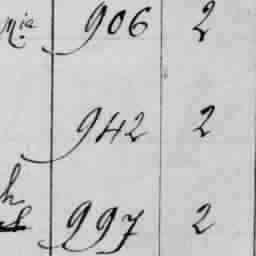 Mia 906 2
942 2
997 2